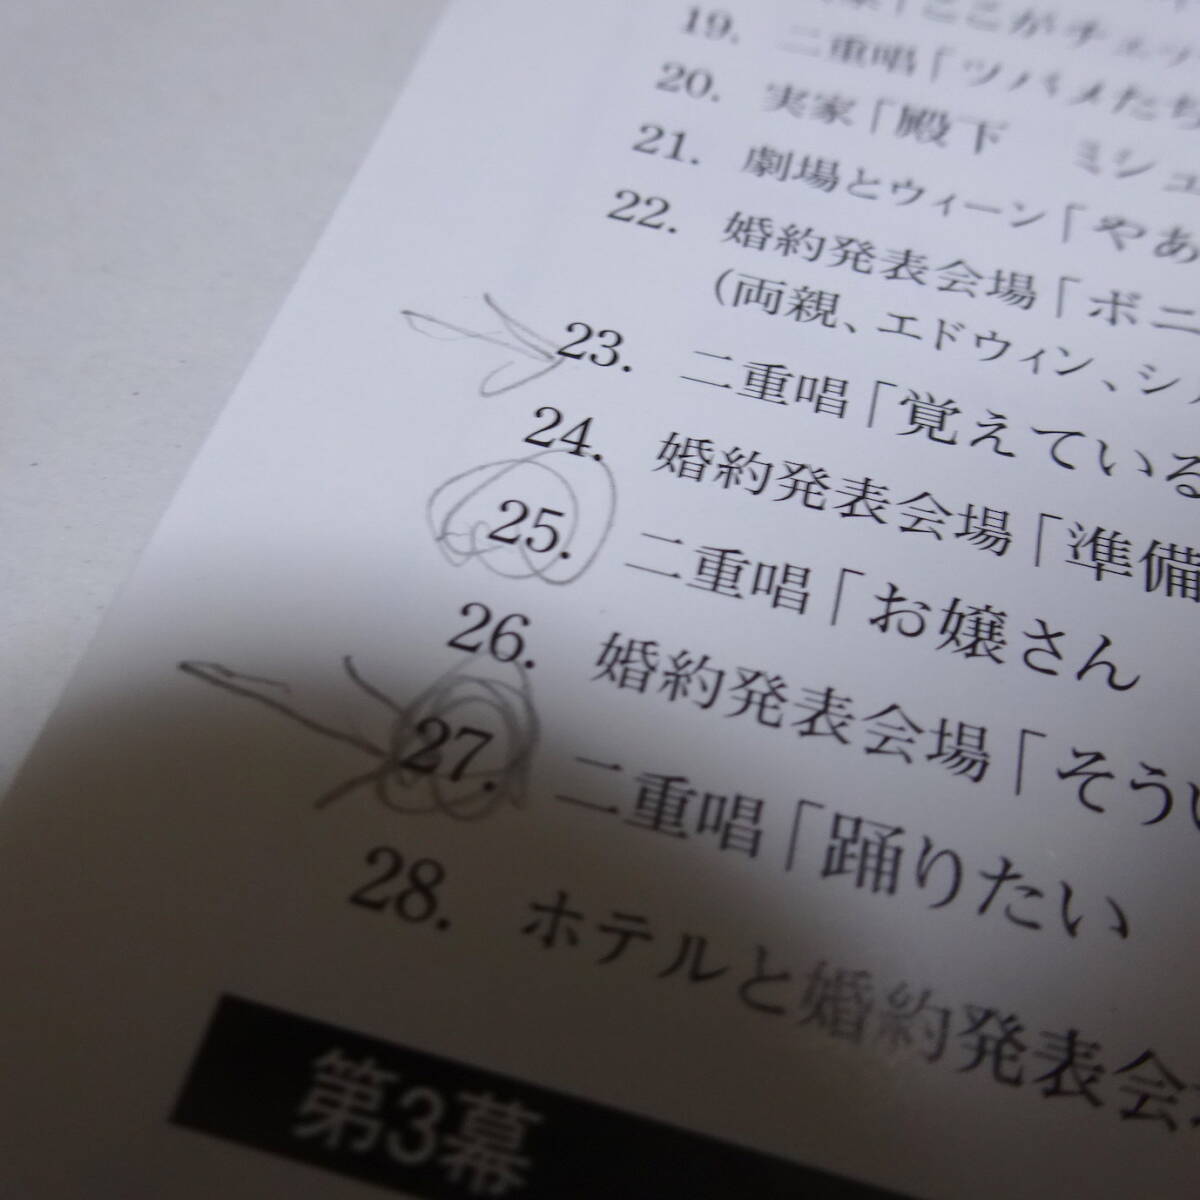 「ここがチェリ
19. 二重唱「ツバメたち
20. 実家「殿下　ミシュ
21. 劇場とウィーン「やあ
22. 婚約発表会場「ボニ
(両親、エドウィン、シル
23. 二重唱「覚えている
24. 婚約発表会場「準備
25. 二重唱「お嬢さん
26. 婚約発表会場「そうい
27. 二重唱「踊りたい
28. ホテルと婚約発表会
第3幕